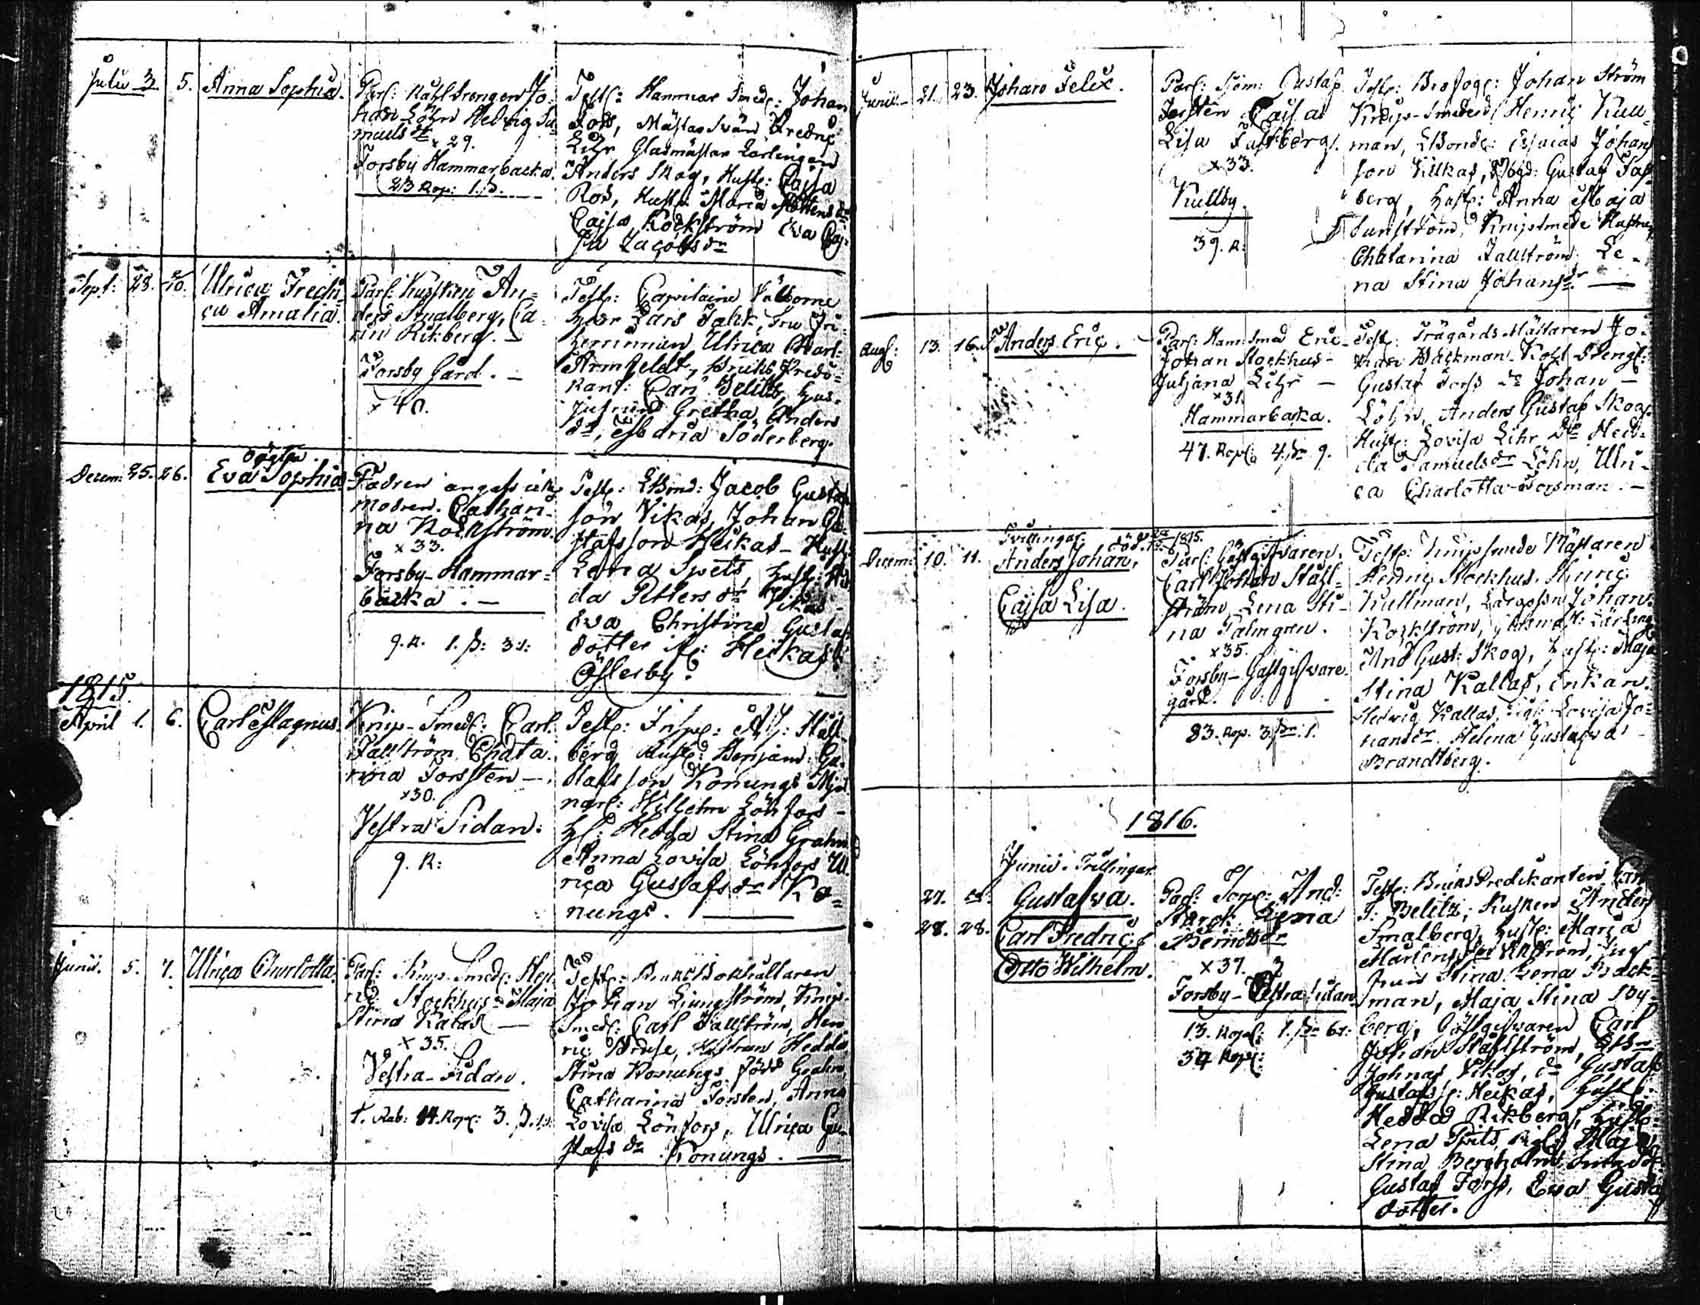 Julii 3. 5. Anna Sophia.
Par: Kohldrengen Jo-
han Löhn Hedvig Sa-
muels dr
x 29.
Forsby Hammarbacka.
23 Kop: 1. β.
Test: Hammar Smed: Johan
Ros, Mästar Sven Fredric
Lihr Glasmästar Lärlingen
Anders Skog, Hust: Cajsa
Ros, Hust: Maria Mårtens dr
Cajsa Kockström Eva Caj-
sa Jacobs dr
Sept: 28. 10. Ulrica Fredri-
ca Amalia.
Par: Kusken An-
ders Smalberg, Ca-
rin Rikberg.
Forsby Gård.
x 40.
Test: Capitaine Välborne
Herr Lars Falck, Fru Fri-
herrinnan Ulrica Charl:
Armfeldt, Bruks Predi-
kant: Carl Belitz, Hus-
Jufrun Gretha Anders
dr, Maria Söderberg.
Decem: 25. 26. oägta
Eva Sophia.
Fadren angafs icke
Modren Cathari-
na Kockström
x 33.
Forsby Hammar-
backa.
9. K. 1. β: 3 d:
Test: Bond: Jacob Gustaf
son Vikas, Johan Gu-
stafsson Heikas Hust:
Lena Spets, Hust: He-
da Petters dr Vikas
Eva Christina Gustafs
dotter Heikas
Österby.
1815.
April 1. 6. Carl Magnus.
Knip-Smed: Carl
Fallström Chata-
rina Forssten
x 30.
Vestra Sidan.
9. K:
Test: Insp: A. J. Stål-
berg Kusk: Benjam: Gu-
stafsson Konungs Mjöl-
nar: Wilhelm Lönfors
H: Hedda Stina Grahn
Anna Lovisa Lönfors Ul-
rica Gustafs dr Ko-
nungs.
Junii. 5. 7. Ulrica Charlotta.
Par: Knip-Smed: Hen-
ric Stockhus Maja
Stina Kalas
x 35.
Vestra Sidan.
1. Rub: 14 Kop: 3. β.
Test: Bruks Bokhållaren
Johan Ljungström, Knip-
Smed: Carl Fallström, Hen-
ric Bruse, Hustrun Hedda
Stina Konungs född Grahn
Catharina Forsten, Anna
Lovisa Lönfors, Ulrica Gu-
stafs dr Konungs.
Junii 21. 23. Johan Felix.
Par: Sjöm: Gustaf
Forsten Cajsa
Lisa Fallberg.
x 33.
Kullby.
39. K.
Test: Brofogd: Johan Ström
Knip-Smeden Henric Kull-
man, Bond: Esaias Johans
son Vikas, Gustaf Fal-
berg, Hust: Anna Maja
Lundström, Knipsmeds Hustrun
Chatarina Fallström Le-
na Stina Johans dr
Aug: 13. 16. Anders Eric.
Par: Ham: Smed Eric
Johan Stockhus
Juliana Lihr
x 31.
Hammarbacka.
47. Kop: 4. β 9.
Test: Trägårds Mästaren Jo-
han Wäckman Kohl Dreng:
Gustaf Forss do Johan
Löhn, Anders Gustaf Skog
Hust: Lovisa Lihr Do Hed-
da Samuels dr Löhn, Ulri-
ca Charlotta Forsman.
Decem: 10. 11. Tvillingar.
Anders Johan,
Cajsa Lisa.
Par: Gästgifvaren
Carl Johan Ståhl-
ström Lena Sti-
na Palmgren.
x 35.
Forsby Gästgifvare
gård.
83. Kop. 3 β 1.
Test: Knipsmeds Mästaren
Henric Stockhus. Henric
Kullman, Johan
Kockström, Glasmäst: Lärling
And Gust: Skog, Hust: Maja
Stina Kallas, Enkan
Hedvig Kallas, Pig: Lovisa Jo-
hans dr Helena Gustafva
Brandtberg.
1816.
Junii Trillingar.
27. Gustafva.
28. 28. Carl Fredric,
Otto Wilhelm.
Par: Torp: And:
Starck Lena
Bernds dr
x 37.
Forsby Vestra sidan
13. Kop: 1. β 6 d:
34 Kop:
Test: Bruks Predikanten Carl
F: Belitz; Kusken Anders
Smalberg, Hust: Maria
Mårtens dr Juf-
frun Stina Lena Brack-
man, Maja Stina Ny-
berg; Gästgifvaren Carl
Johan Ståhlström,
Johnas Vikas, do Gustaf
Gustafss: Heikas, Hust:
Hedda Rikberg, Hust:
Lena Spets Maja
Stina Bergholm,
Gustaf Forss, Eva Gustafs
dotter.